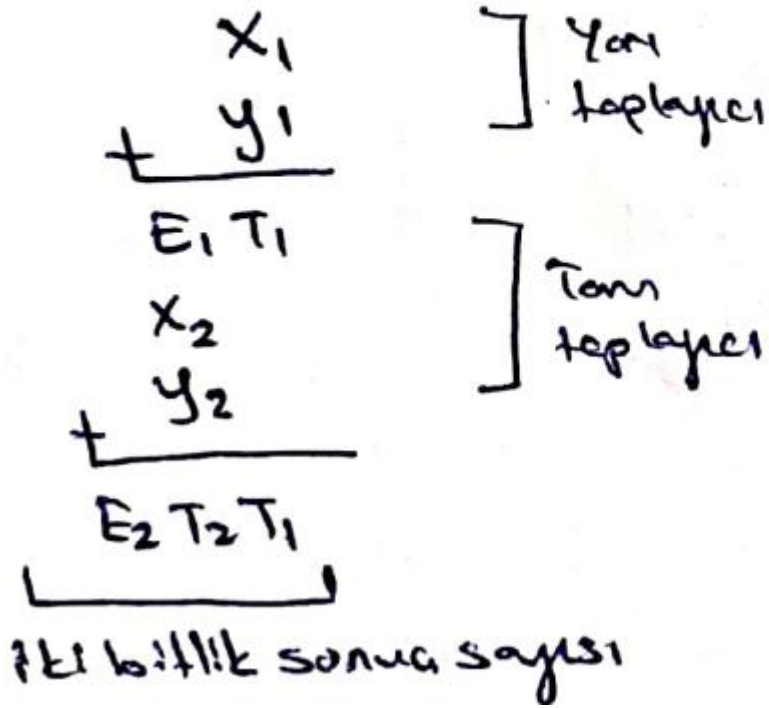 X1
y1
+
Yarı
toplayıcı
E1 T1
X2
y2
+
Tam
toplayıcı
E2 T2 T1
iki bitlik sonuç sayısı